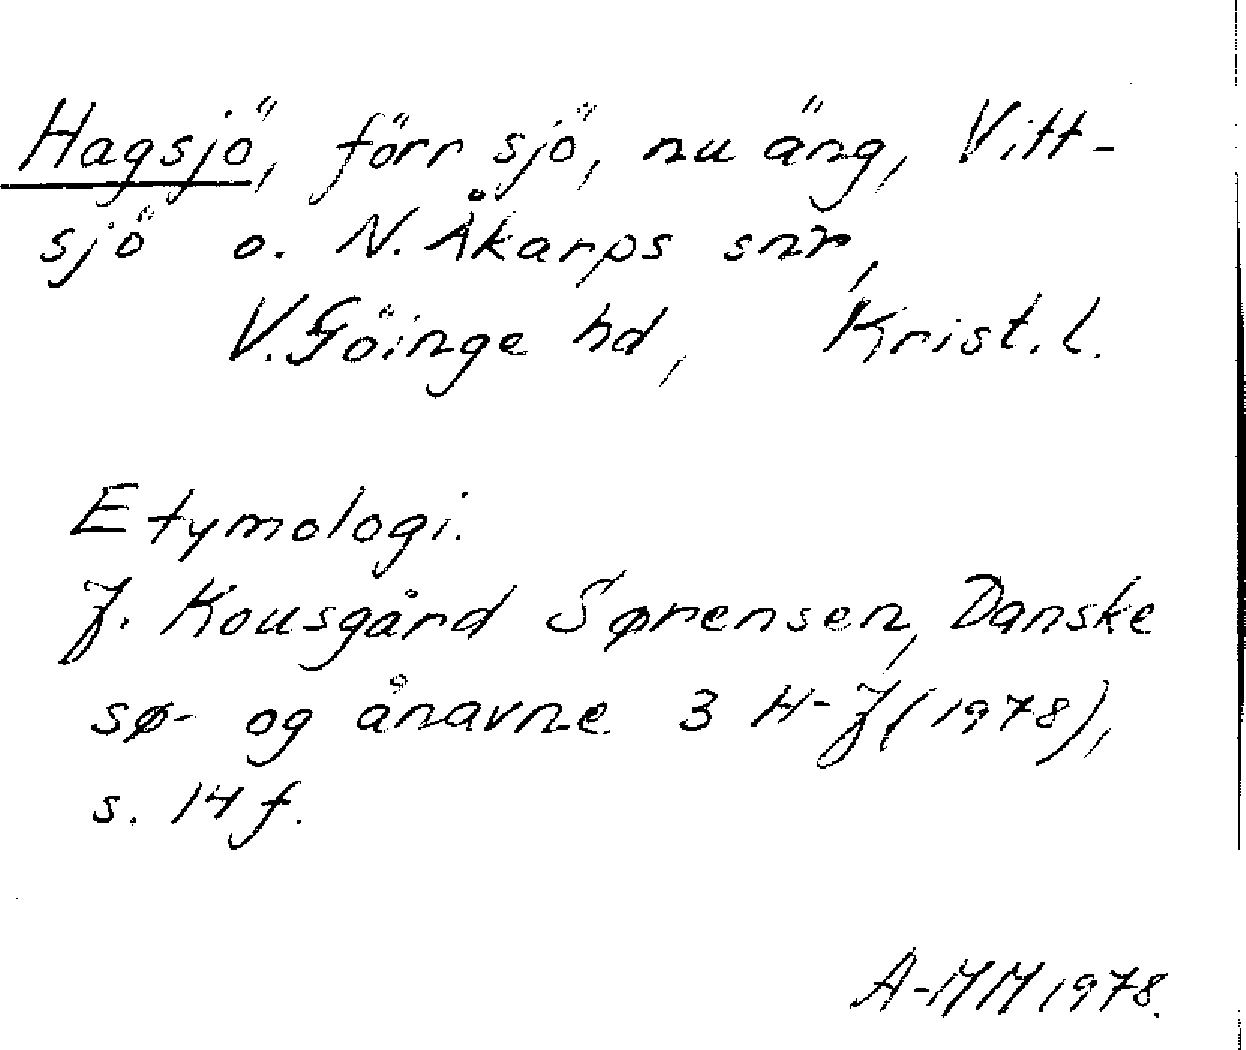 Hagsjö, förr sjö, nu äng, Vitt-
sjö o. N. Åkarps snr,
V. Göinge hd, Krist. l.
Etymologi.
J. Kousgård Sørensen, Danske
sø- og ånavne 3 H-J (1978),
s. 14 f.
A-MM 1978.